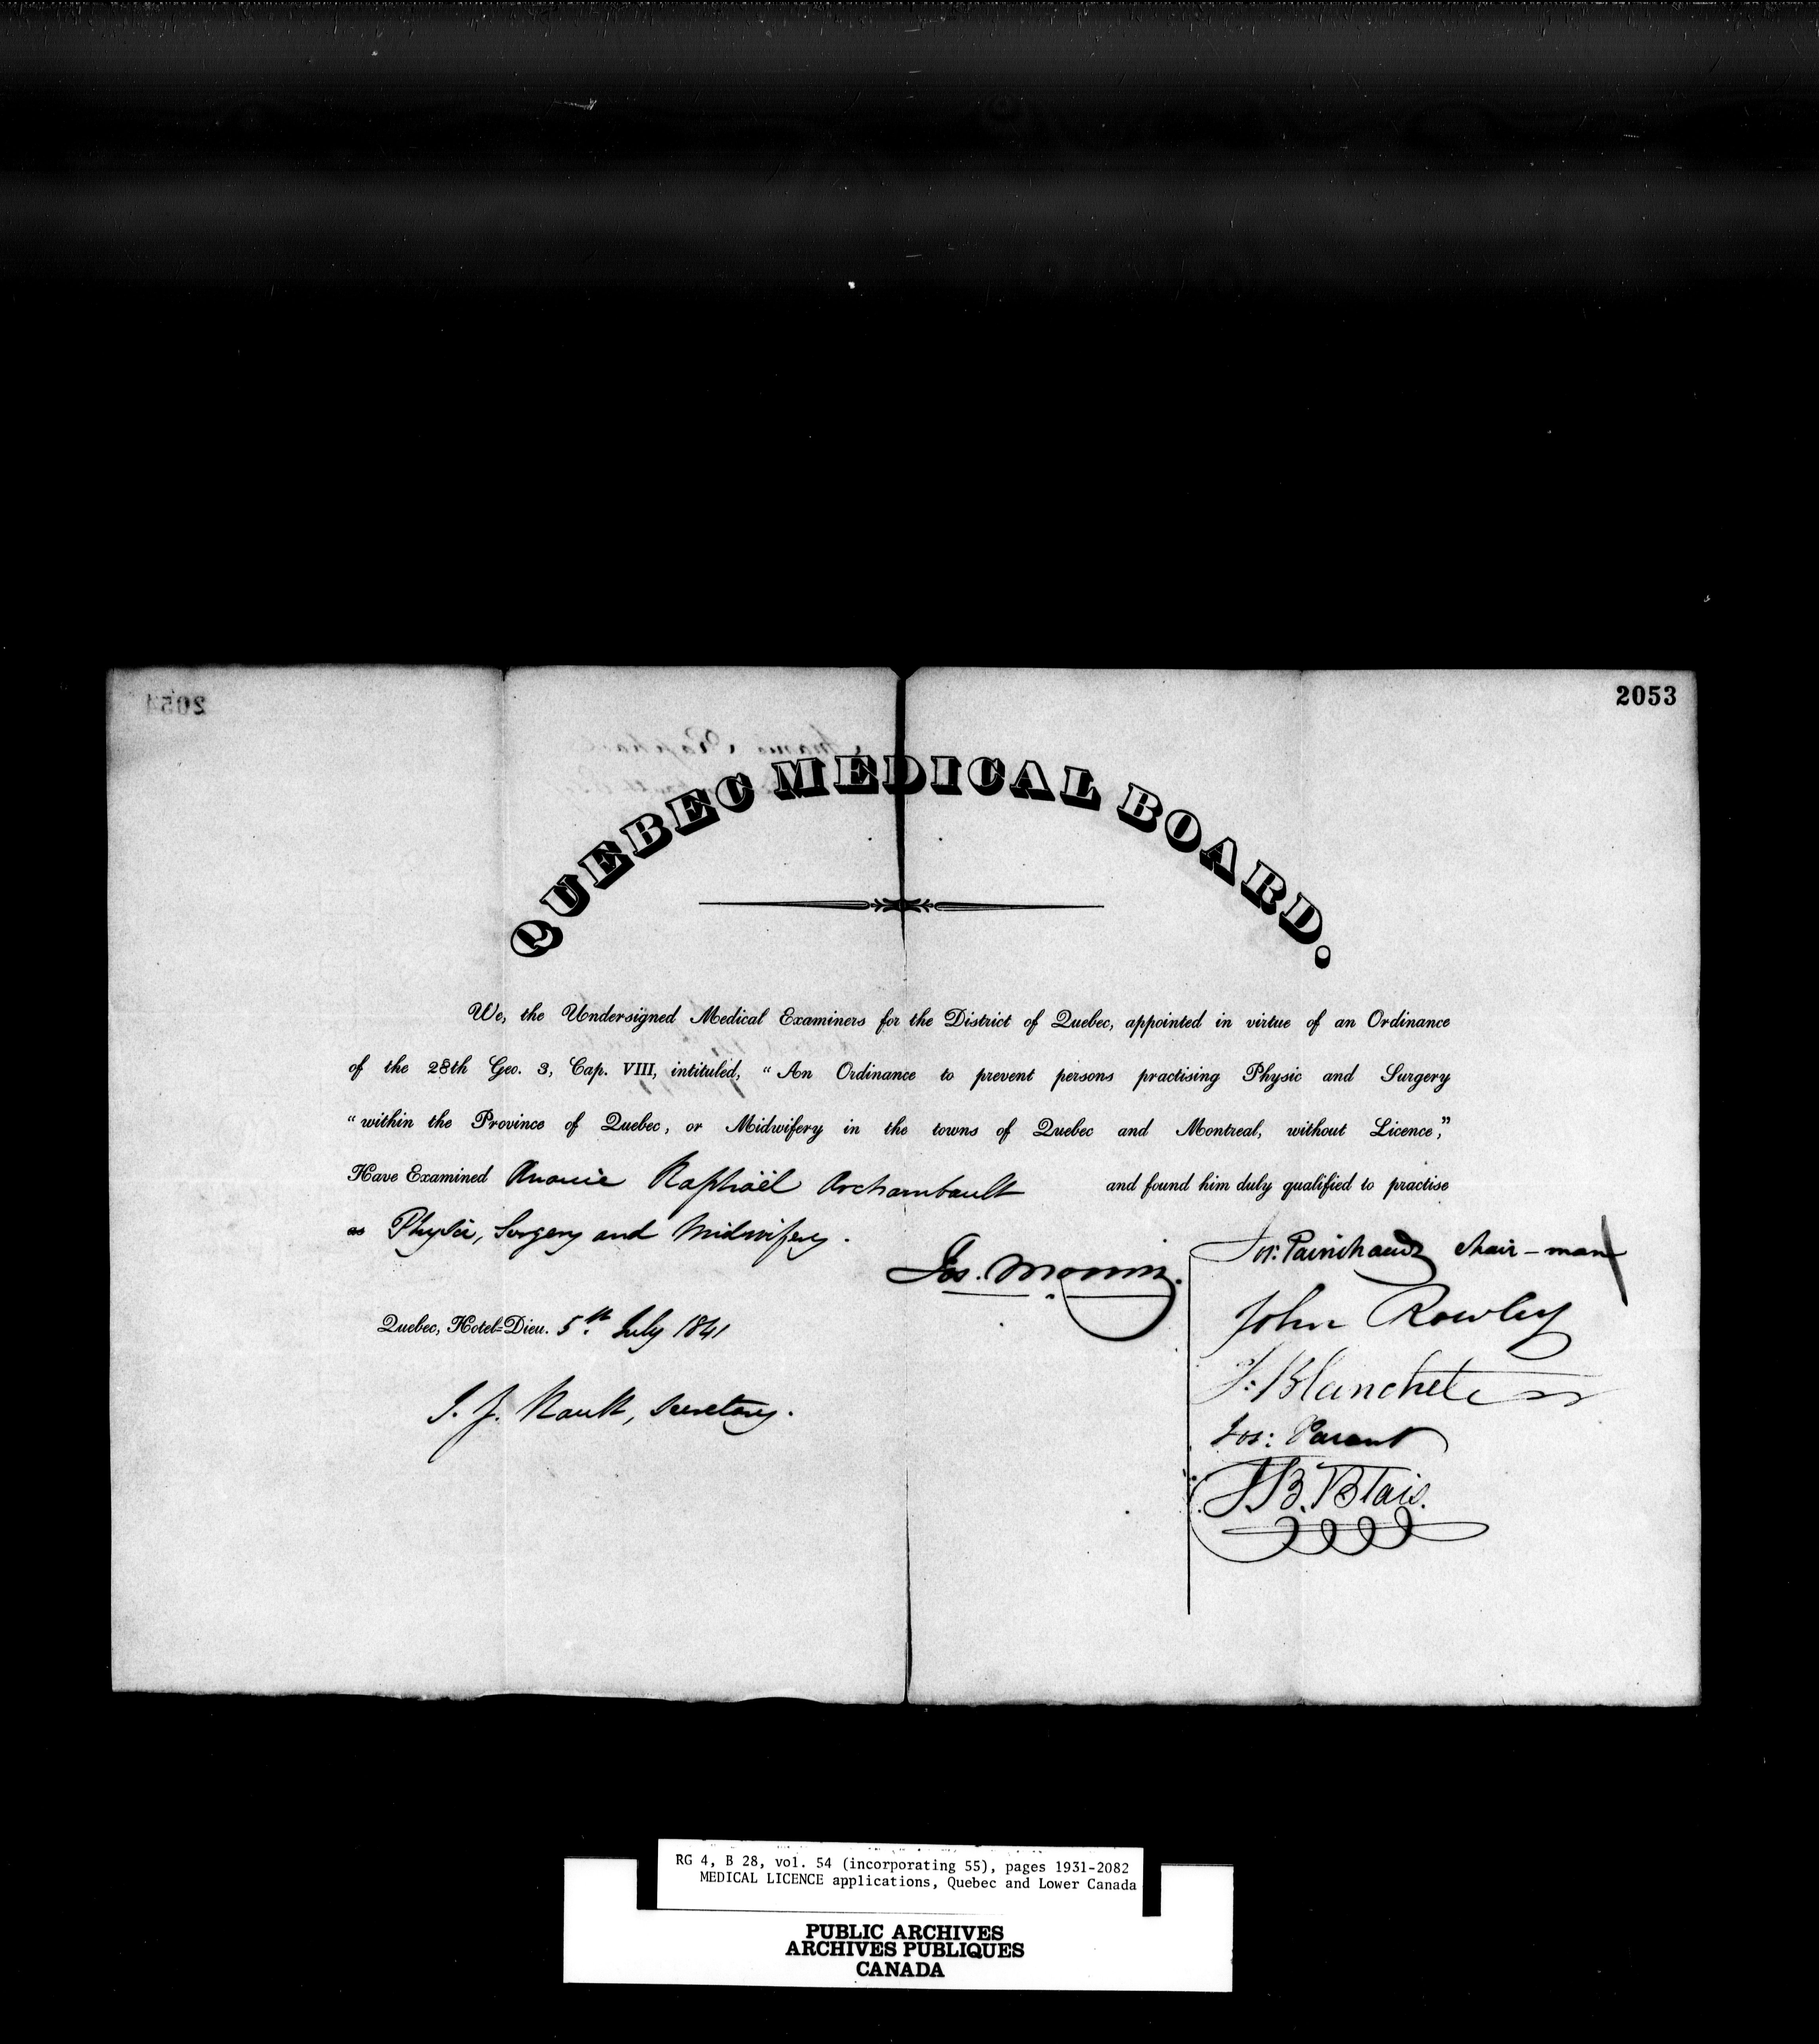 2053
QUEBEC MEDICAL BOARD.
We, the Undersigned Medical Examiners for the District of Quebec, appointed in virtue of an Ordinance
of the 28th Geo. 3, Cap. VIII, intituled, “An Ordinance to prevent persons practising Physic and Surgery
“within the Province of Quebec, or Midwifery in the towns of Quebec and Montreal, without Licence,”
Have Examined Ananie Raphaël Archambault and found him duly qualified to practise
as Physic, Surgery and Midwifery.
Jos. Morrin.
Jos: Painchaud chair-man
John Rowley
Quebec, Hotel-Dieu. 5th July 1841
F: Blanchet
J. Z. Nault, Secretary.
Jos: Parant
J B. Blais.
RG 4, B 28, vol. 54 (incorporating 55), pages 1931-2082
MEDICAL LICENCE applications, Quebec and Lower Canada
PUBLIC ARCHIVES
ARCHIVES PUBLIQUES
CANADA